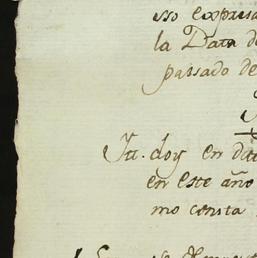 uso expresa
la Data de
passado de
Yu. doy en da
en este año
mo consta